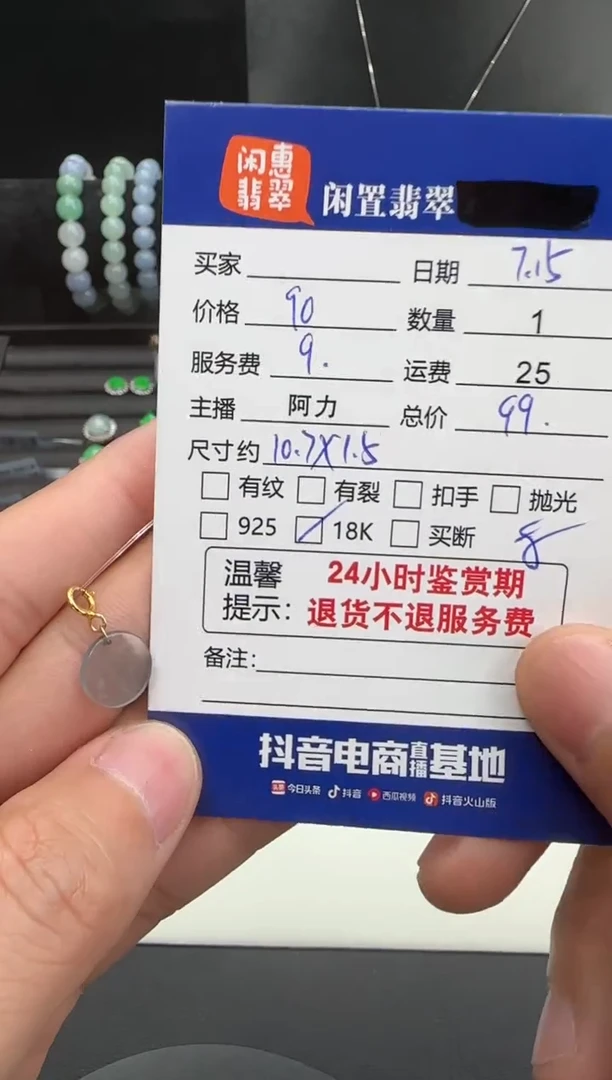 闲惠
翡翠
闲置翡翠
买家 日期 7.15
价格 90 数量 1
服务费 9. 运费 25
主播 阿力 总价 99.
尺寸约 10.7X1.5
有纹 有裂 扣手 抛光
925 18K 买断
温馨 24小时鉴赏期
提示: 退货不退服务费
备注:
抖音电商直播基地
头条 今日头条 抖音 西瓜视频 抖音火山版